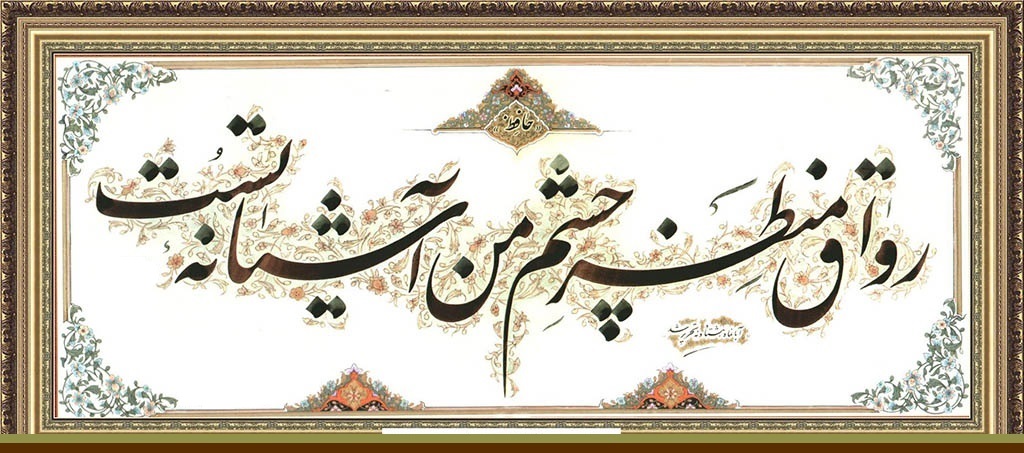 حافظ
رواق منظر چشم من آشیانهٔ تُست